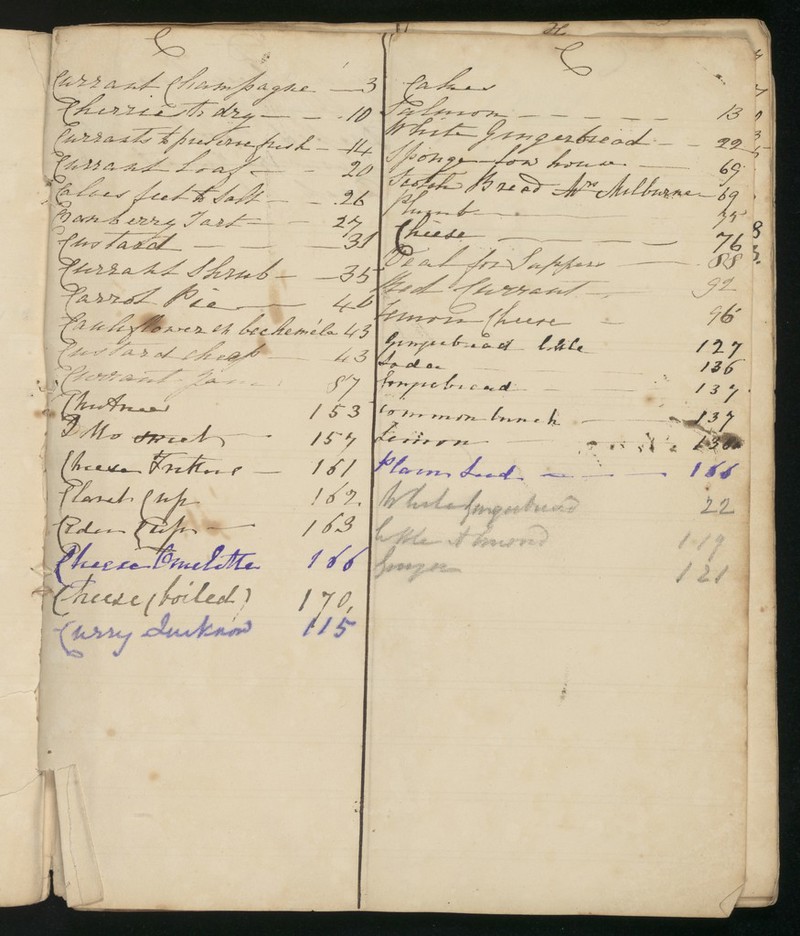 C
Currant Champagne 3
Cherries to dry 10
Currants to preserve fresh 14
Currant Loaf 20
Calves feet to Salt 26
Cranberry Tart 27
Custard 31
Currant Shrub 35
Carrot Pie 40
Cauliflower en becheméla 43
Custard cheap 43
Currant Jam 87
Chutnee 153
Ditto sweet 157
Cheese Fritters 161
Claret Cup 162
Cider Cup 163
Cheese Omelitte 166
Cheese (boiled) 170
Curry Lucknow 115
C
Cakes
13
White Gingerbread 22
Sponge 69
Scotch Bread Mrs Milburne 69
Plumb 75
Cheese 76
for Suppers 88
Red Currant 92
Lemon Cheese 96
Gingerbread little 127
Soda 136
Gingerbread 137
Common lunch 137
Lemon
Plain Seed 166
White Gingerbread 22
little Almond 119
Ginger 121